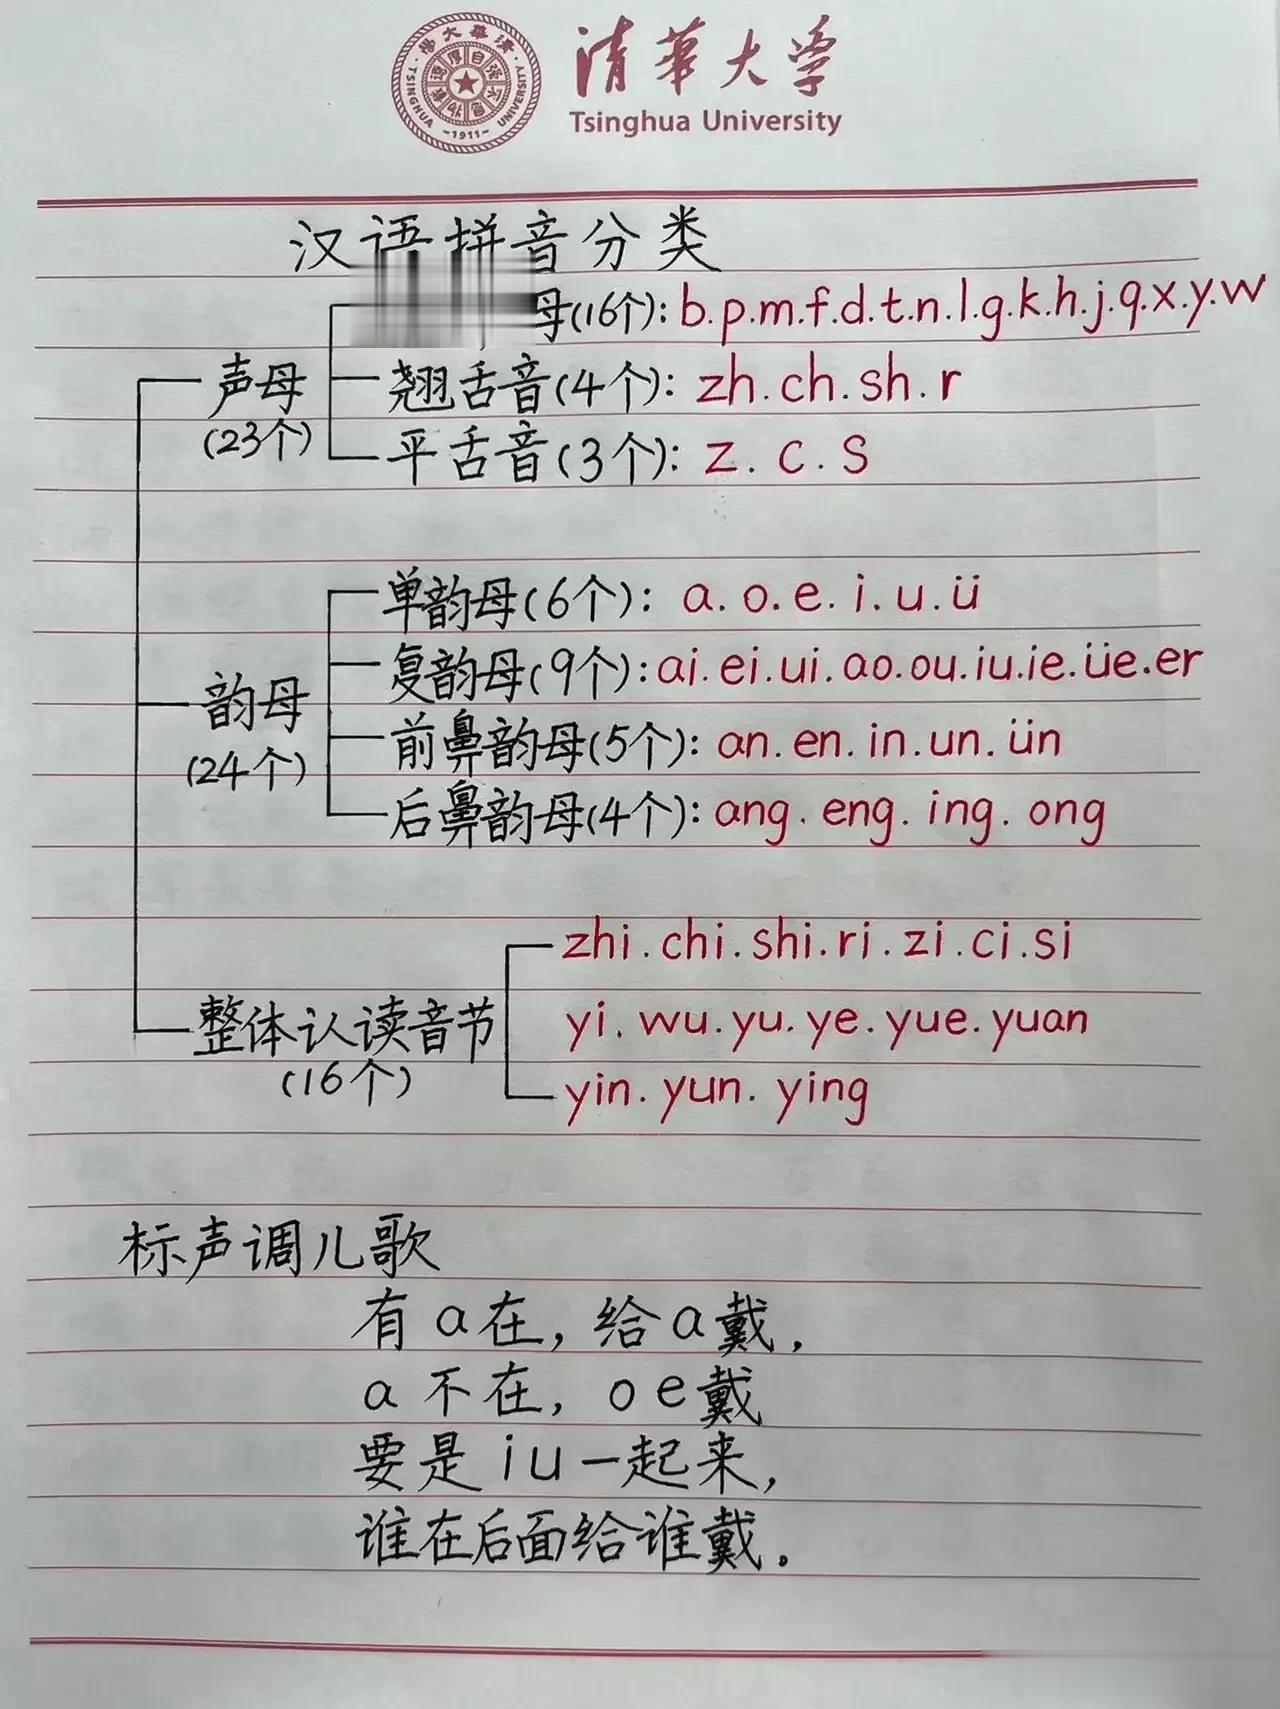 清華大学
Tsinghua University
TSINGHUA UNIVERSITY
-1911-
汉语拼音分类
母(16个): b.p.m.f.d.t.n.l.g.k.h.j.q.x.y.w
声母
(23个)
翘舌音(4个): zh.ch.sh.r
平舌音(3个): z.c.s
单韵母(6个): a.o.e.i.u.ü
复韵母(9个): ai.ei.ui.ao.ou.iu.ie.üe.er
韵母
(24个)
前鼻韵母(5个): an.en.in.un.ün
后鼻韵母(4个): ang.eng.ing.ong
zhi.chi.shi.ri.zi.ci.si
整体认读音节
(16个)
yi.wu.yu.ye.yue.yuan
yin.yun.ying
标声调儿歌
有a在,给a戴,
a不在,oe戴
要是iu一起来,
谁在后面给谁戴。